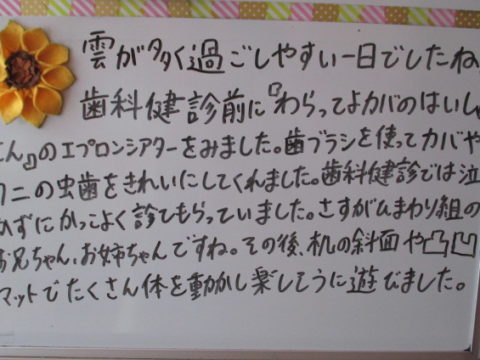 雲が多く過ごしやすい一日でしたね
歯科健診前に『わらってよカバのはいしゃ
さん』のエプロンシアターをみました。歯ブラシを使ってカバや
ワニの虫歯をきれいにしてくれました。歯科健診では泣
かずにかっこよく診てもらっていました。さすがひまわり組の
お兄ちゃん、お姉ちゃんですね。その後、机の斜面や凸凹
マットでたくさん体を動かし楽しそうに遊びました。